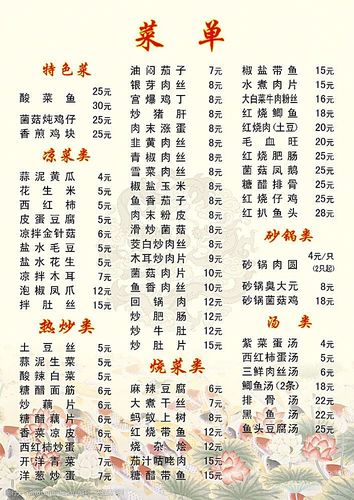 菜 单
特色菜
酸菜鱼 25元
30元
菌菇炖鸡仔 25元
香煎鸡块 25元
凉菜类
蒜泥黄瓜 4元
花生米 5元
西红柿 5元
皮蛋豆腐 5元
凉拌金针菇 6元
盐水毛豆 5元
盐水花生 5元
凉拌木耳 7元
泡椒凤爪 12元
拌肚丝 15元
热炒类
土豆丝 5元
蒜泥生菜 5元
酸辣白菜 5元
糖醋面筋 6元
炒藕片 6元
糖醋藕片 6元
香菜凉皮 6元
西红柿炒蛋 7元
开洋青菜 7元
洋葱炒蛋 7元
油闷茄子 7元
银芽肉丝 8元
宫爆鸡丁 8元
炒猪肝 8元
肉末涨蛋 8元
韭黄肉丝 8元
青椒肉丝 8元
雪菜肉丝 8元
椒盐玉米 8元
鱼香茄子 8元
肉末粉皮 8元
滑炒菌菇 8元
茭白炒肉丝 9元
木耳炒肉片 9元
菌菇肉片 10元
鱼香肉丝 10元
回锅肉 12元
炒肥肠 12元
炒牛肚 12元
炒肚片 15元
烧菜类
麻辣豆腐 6元
大煮干丝 8元
蚂蚁上树 8元
红烧带鱼 12元
烧杂烩 12元
茄汁咕咾肉 15元
糖醋带鱼 15元
椒盐带鱼 15元
水煮肉片 15元
大白菜牛肉粉丝 16元
红烧鲫鱼 18元
红烧肉(土豆) 20元
毛血旺 20元
红烧肥肠 25元
菌菇凤鹅 25元
糖醋排骨 25元
红烧仔鸡 25元
红扒鱼头 28元
砂锅类
砂锅肉圆 4元/只
(2只起)
砂锅臭大元 8元
砂锅菌菇鸡 18元
汤 类
紫菜蛋汤 4元
西红柿蛋汤 5元
三鲜肉丝汤 6元
鲫鱼汤(2条) 18元
排骨汤 22元
黑鱼汤 22元
鱼头豆腐汤 25元